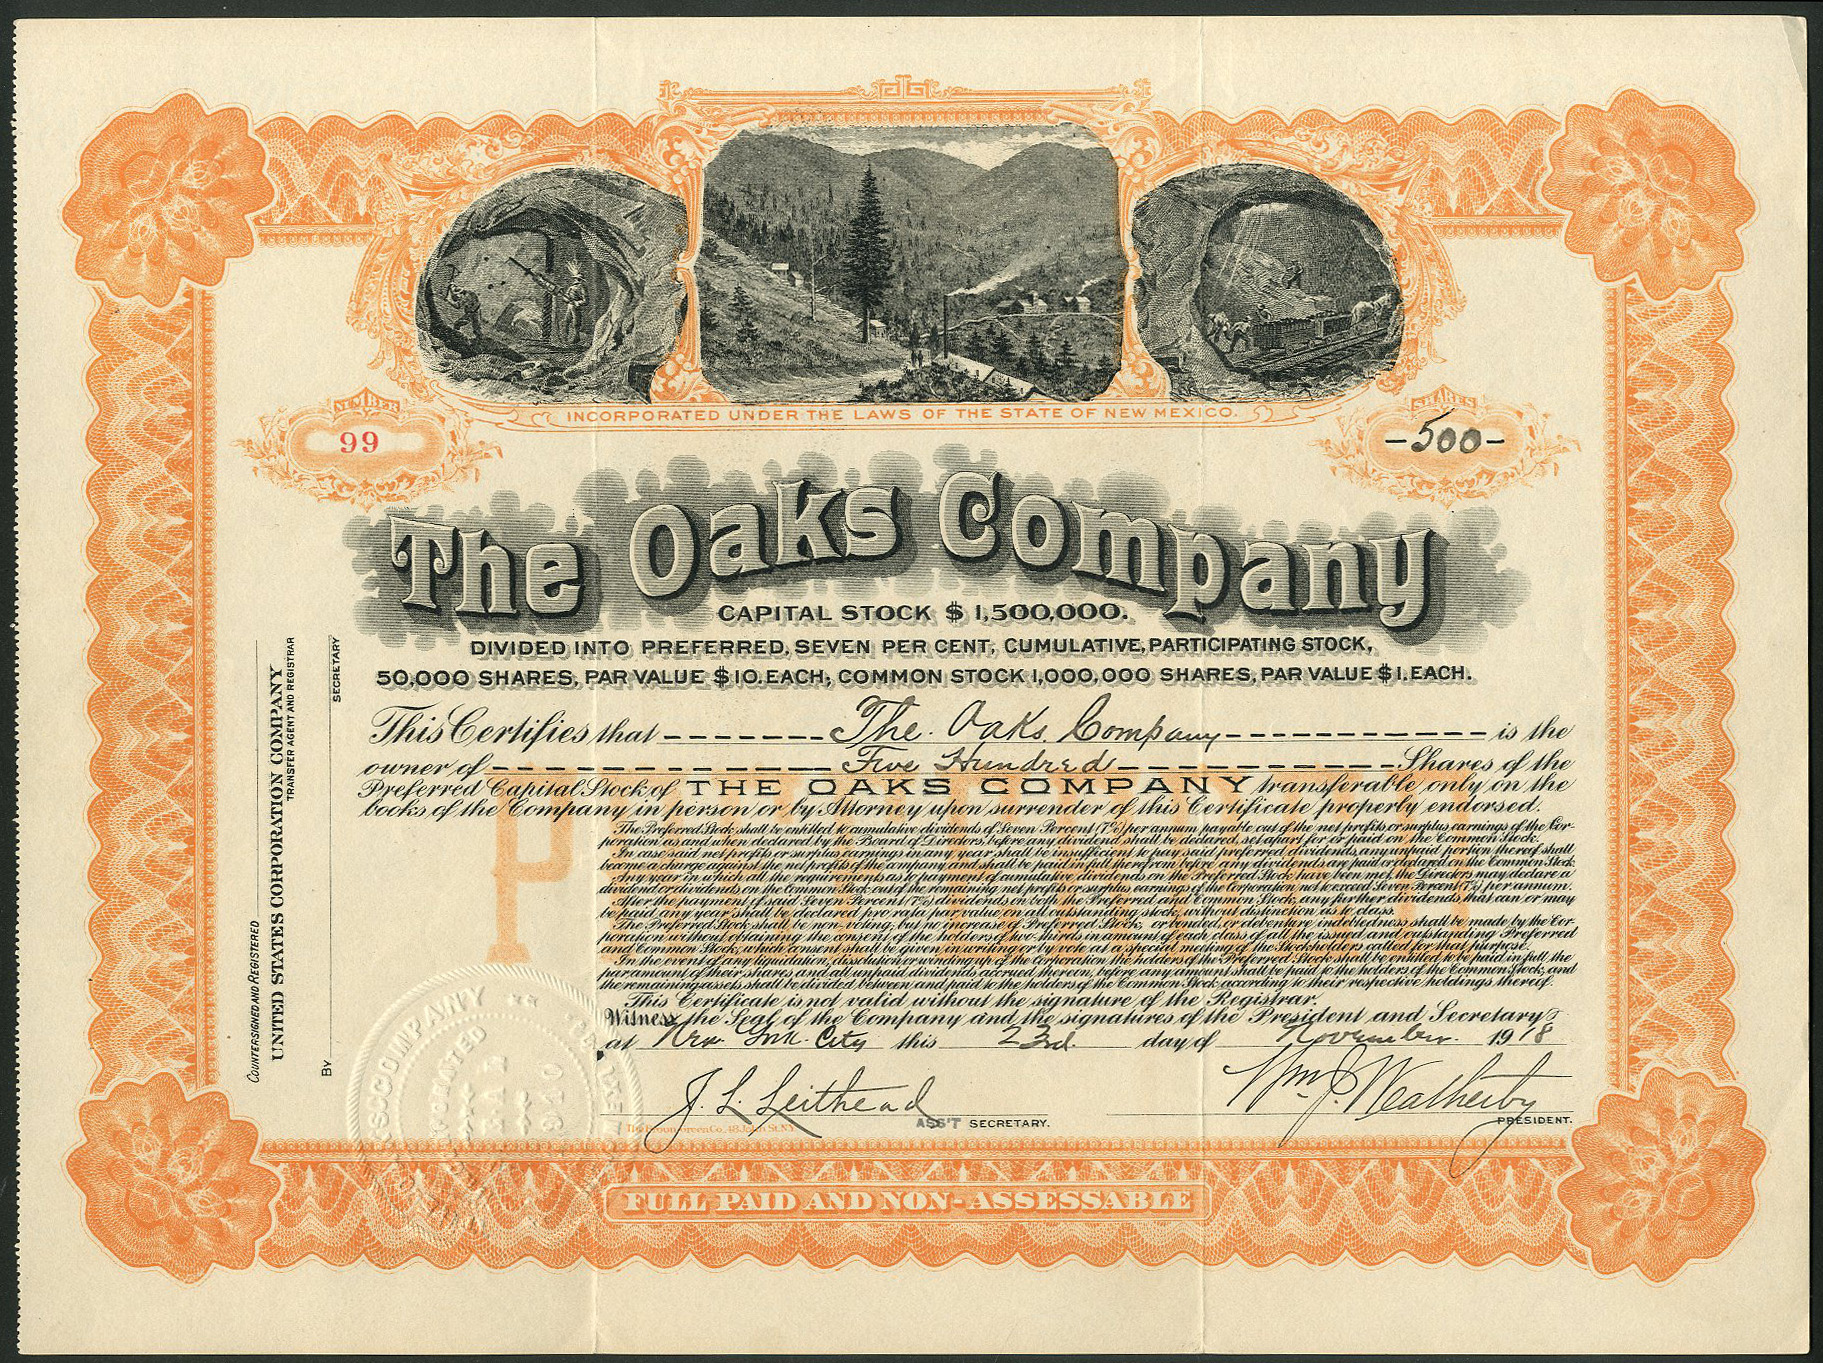 INCORPORATED UNDER THE LAWS OF THE STATE OF NEW MEXICO.
NUMBER
99
SHARES
-500-
The Oaks Company
CAPITAL STOCK $ 1,500,000.
DIVIDED INTO PREFERRED, SEVEN PER CENT, CUMULATIVE, PARTICIPATING STOCK,
50,000 SHARES, PAR VALUE $10. EACH; COMMON STOCK 1,000,000 SHARES, PAR VALUE $1. EACH.
This Certifies that The Oaks Company is the
owner of Five Hundred Shares of the
Preferred Capital Stock of THE OAKS COMPANY transferable only on the
books of the Company in person or by Attorney upon surrender of this Certificate properly endorsed.
The Preferred Stock shall be entitled to cumulative dividends of Seven Percent (7%) per annum payable out of the net profits or surplus earnings of the Cor-
poration as and when declared by the Board of Directors, before any dividend shall be declared, set apart for or paid on the Common Stock.
In case said net profits or surplus earnings in any year shall be insufficient to pay said preferred dividends, any unpaid portion thereof shall
become a charge against the net profits of the company and shall be paid in full therefrom before any dividends are paid or declared on the Common Stock.
Any year in which all the requirements as to payment of cumulative dividends on the Preferred Stock have been met, the Directors may declare a
dividend or dividends on the Common Stock out of the remaining net profits or surplus earnings of the Corporation not to exceed Seven Percent (7%) per annum.
After the payment of said Seven Percent (7%) dividends on both the Preferred and Common Stock, any further dividends that can or may
be paid any year shall be declared pro rata par value on all outstanding stock, without distinction as to class.
The Preferred Stock shall be non-voting; but no increase of Preferred Stock, or bonded, or debenture indebtedness shall be made by the Cor-
poration without obtaining the consent of the holders of two-thirds in amount of each class of all the issued and outstanding Preferred
and Common Stock, which consent shall be given in writing or by vote at a special meeting of the Stockholders called for that purpose.
In the event of any liquidation, dissolution or winding up of the Corporation the holders of the Preferred Stock shall be entitled to be paid in full the
par amount of their shares and all unpaid dividends accrued thereon, before any amount shall be paid to the holders of the Common Stock, and
the remaining assets shall be divided between and paid to the holders of the Common Stock according to their respective holdings thereof.
This Certificate is not valid without the signature of the Registrar.
Witness the Seal of the Company and the signatures of the President and Secretary
at New York City this 23rd. day of November. 1918
J. L. Leithead
ASS'T SECRETARY.
Wm. J. Weatherby
PRESIDENT.
FULL PAID AND NON-ASSESSABLE
COUNTERSIGNED AND REGISTERED
UNITED STATES CORPORATION COMPANY
TRANSFER AGENT AND REGISTRAR
BY SECRETARY
P